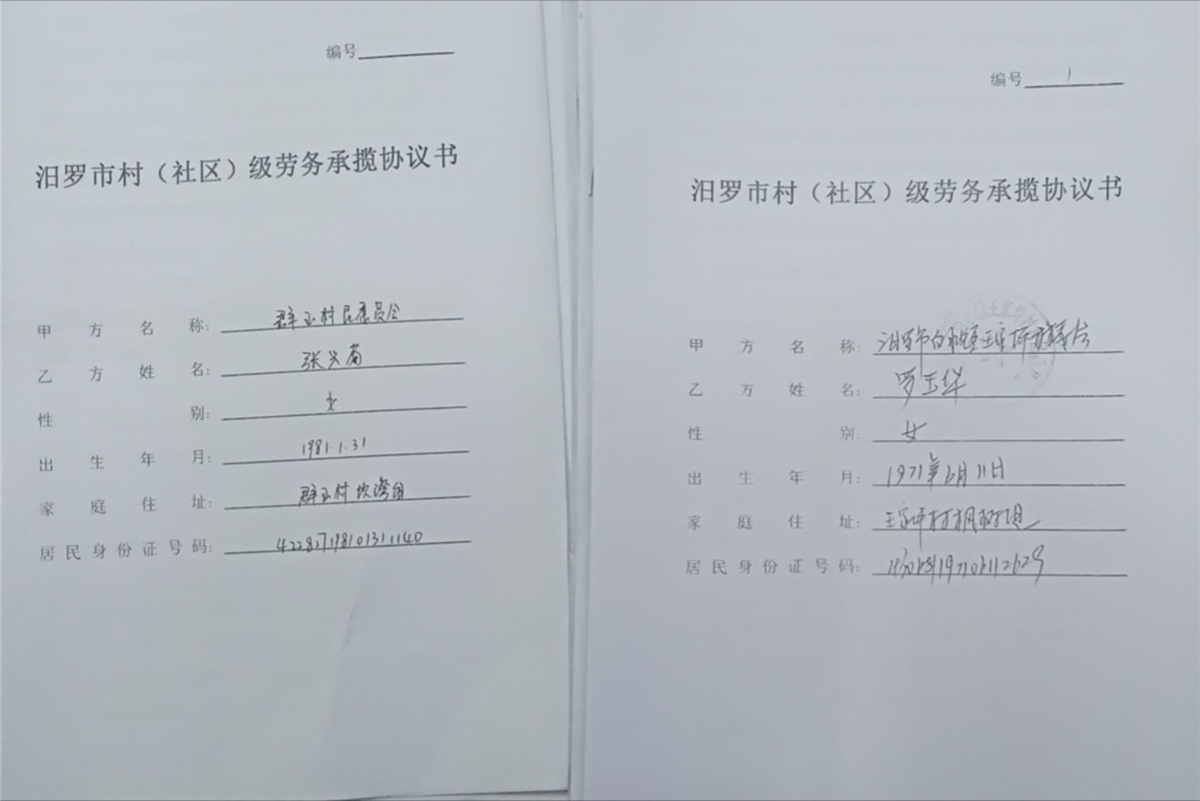 编号
汨罗市村（社区）级劳务承揽协议书
甲方名称: 群玉村民委员会
乙方姓名: 张兴菊
性别: 女
出生年月: 1981.1.31
家庭住址: 群玉村坎湾组
居民身份证号码: 422827198101311140
编号 1
汨罗市村（社区）级劳务承揽协议书
甲方名称: 汨罗市白水镇王家坪
乙方姓名: 罗玉华
性别: 女
出生年月: 1971年6月11日
家庭住址: 王家坪村枫树组
居民身份证号码: